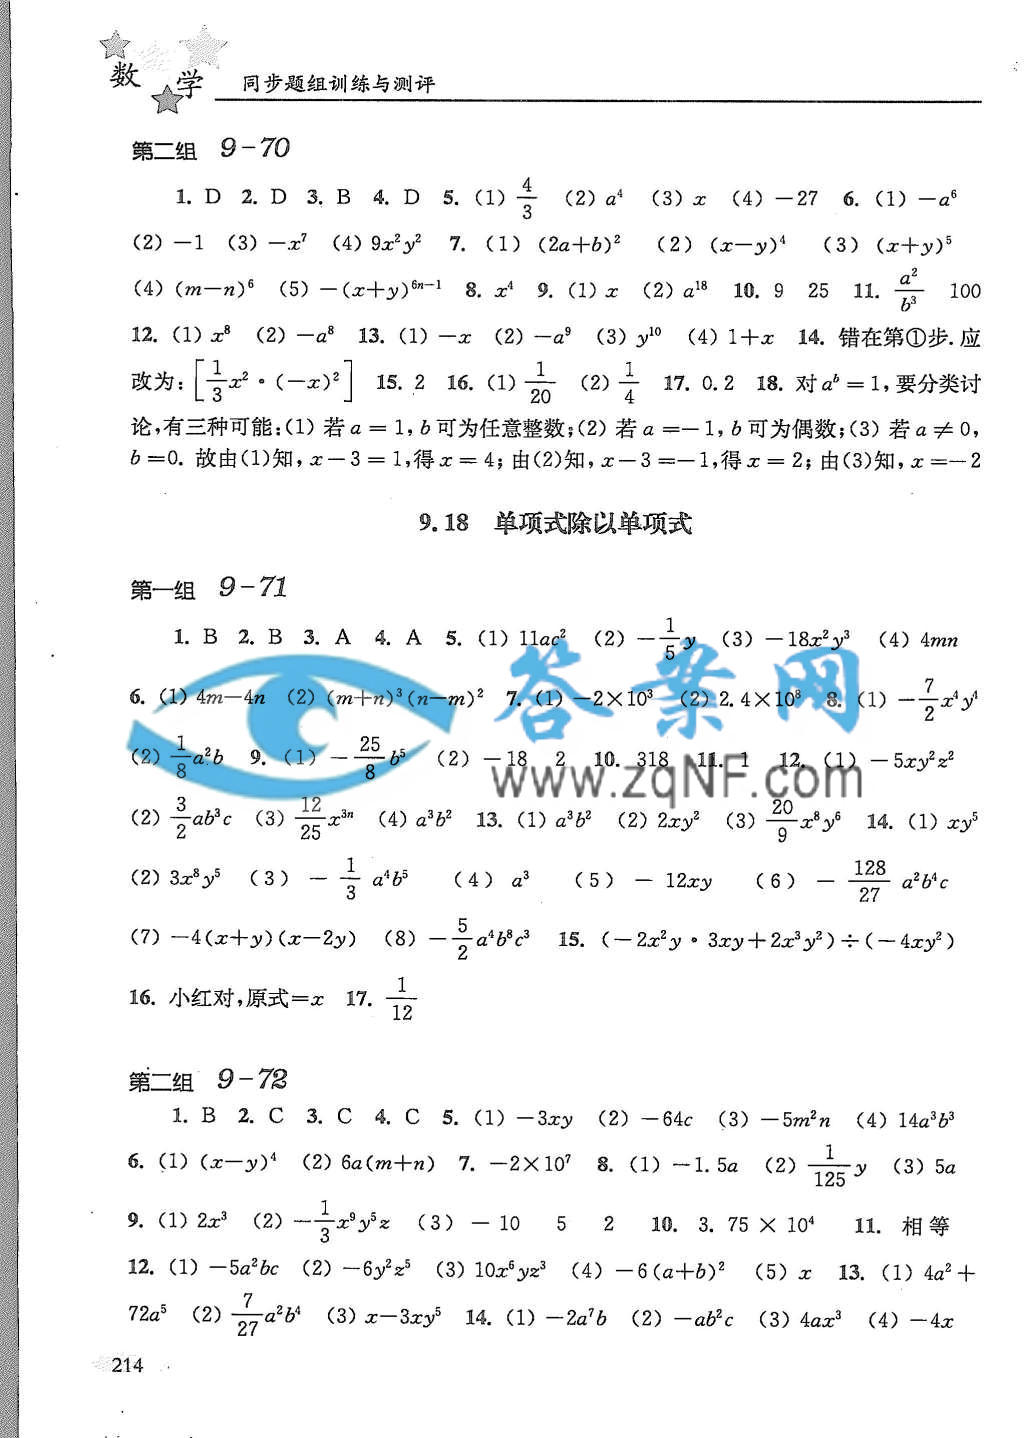 数学 同步题组训练与测评
第二组 9-70
1. D 2. D 3. B 4. D 5. (1) 4/3 (2) a⁴ (3) x (4) －27 6. (1) －a⁶
(2) －1 (3) －x⁷ (4) 9x²y² 7. (1) (2a＋b)² (2) (x－y)⁴ (3) (x＋y)⁵
(4) (m－n)⁶ (5) －(x＋y)⁶ⁿ⁻¹ 8. x⁴ 9. (1) x (2) a¹⁸ 10. 9 25 11. a²/b³ 100
12. (1) x⁸ (2) －a⁸ 13. (1) －x (2) －a⁹ (3) y¹⁰ (4) 1＋x 14. 错在第①步.应
改为:[1/3 x²·(－x)²] 15. 2 16. (1) 1/20 (2) 1/4 17. 0.2 18. 对 aᵇ＝1,要分类讨
论,有三种可能:(1) 若 a＝1,b 可为任意整数;(2) 若 a＝－1,b 可为偶数;(3) 若 a≠0,
b＝0. 故由(1)知,x－3＝1,得 x＝4;由(2)知,x－3＝－1,得 x＝2;由(3)知,x＝－2
9.18 单项式除以单项式
第一组 9-71
1. B 2. B 3. A 4. A 5. (1) 11ac² (2) －1/5 y (3) －18x²y³ (4) 4mn
6. (1) 4m－4n (2) (m＋n)³(n－m)² 7. (1) －2×10³ (2) 2.4×10⁸ 8. (1) －7/2 x⁴y⁴
(2) 1/8 a²b 9. (1) －25/8 b⁵ (2) －18 2 10. 318 11. 1 12. (1) －5xy²z²
(2) 3/2 ab³c (3) 12/25 x³ⁿ (4) a³b² 13. (1) a³b² (2) 2xy² (3) 20/9 x⁸y⁶ 14. (1) xy⁵
(2) 3x⁸y⁵ (3) －1/3 a⁴b⁵ (4) a³ (5) －12xy (6) －128/27 a²b⁴c
(7) －4(x＋y)(x－2y) (8) －5/2 a⁴b⁸c³ 15. (－2x²y·3xy＋2x³y²)÷(－4xy²)
16. 小红对,原式＝x 17. 1/12
第二组 9-72
1. B 2. C 3. C 4. C 5. (1) －3xy (2) －64c (3) －5m²n (4) 14a³b³
6. (1) (x－y)⁴ (2) 6a(m＋n) 7. －2×10⁷ 8. (1) －1.5a (2) 1/125 y (3) 5a
9. (1) 2x³ (2) －1/3 x⁹y⁵z (3) －10 5 2 10. 3.75×10⁴ 11. 相等
12. (1) －5a²bc (2) －6y²z⁵ (3) 10x⁶yz³ (4) －6(a＋b)² (5) x 13. (1) 4a²＋
72a⁵ (2) 7/27 a²b⁴ (3) x－3xy⁵ 14. (1) －2a⁷b (2) －ab²c (3) 4ax³ (4) －4x
214
答案网
www.zqNF.com